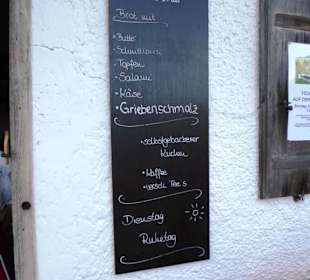 Brot mit
• Butter
• Schnittlauch
• Topfen
• Salami
• Käse
• Griebenschmalz
• selbstgebackener
Kuchen
• Kaffee
• versch. Tee's
Dienstag
Ruhetag